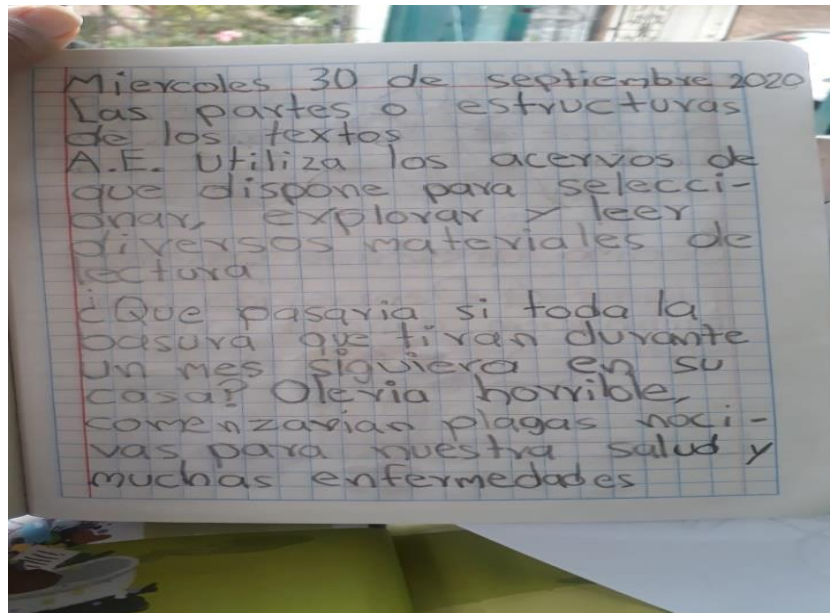 Miercoles 30 de septiembre 2020
Las partes o estructuras
de los textos
A.E. Utiliza los acervos de
que dispone para selecci-
onar, explorar y leer
diversos materiales de
lectura
¿Que pasaria si toda la
basura que tiran durante
un mes siguiera en su
casa? Oleria horrible,
comenzarian plagas noci-
vas para nuestra salud y
muchas enfermedades